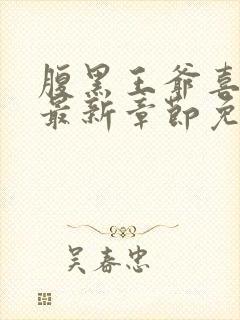 腹黑王爷喜
最新章节免
吴春忠